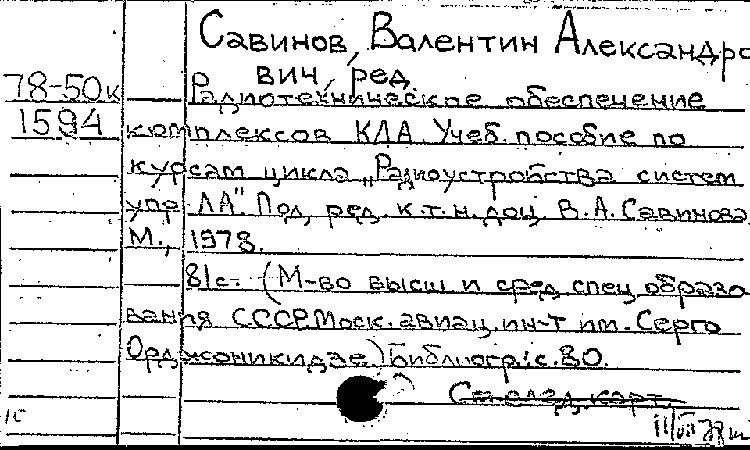 Савинов, Валентин Александро
вич, ред.
78-50к
1594
Радиотехническое обеспечение
комплексов КЛА. Учеб. пособие по
курсам цикла „Радиоустройства систем
упр. ЛА". Под ред. к.т.н. доц. В.А. Савинова.
М., 1978.
81с. (М-во высш и сред. спец. образо
вания СССР. Моск. авиац. ин-т им. Серго
Орджоникидзе) Библиогр.: с. 80.
См. след. карт.
1С